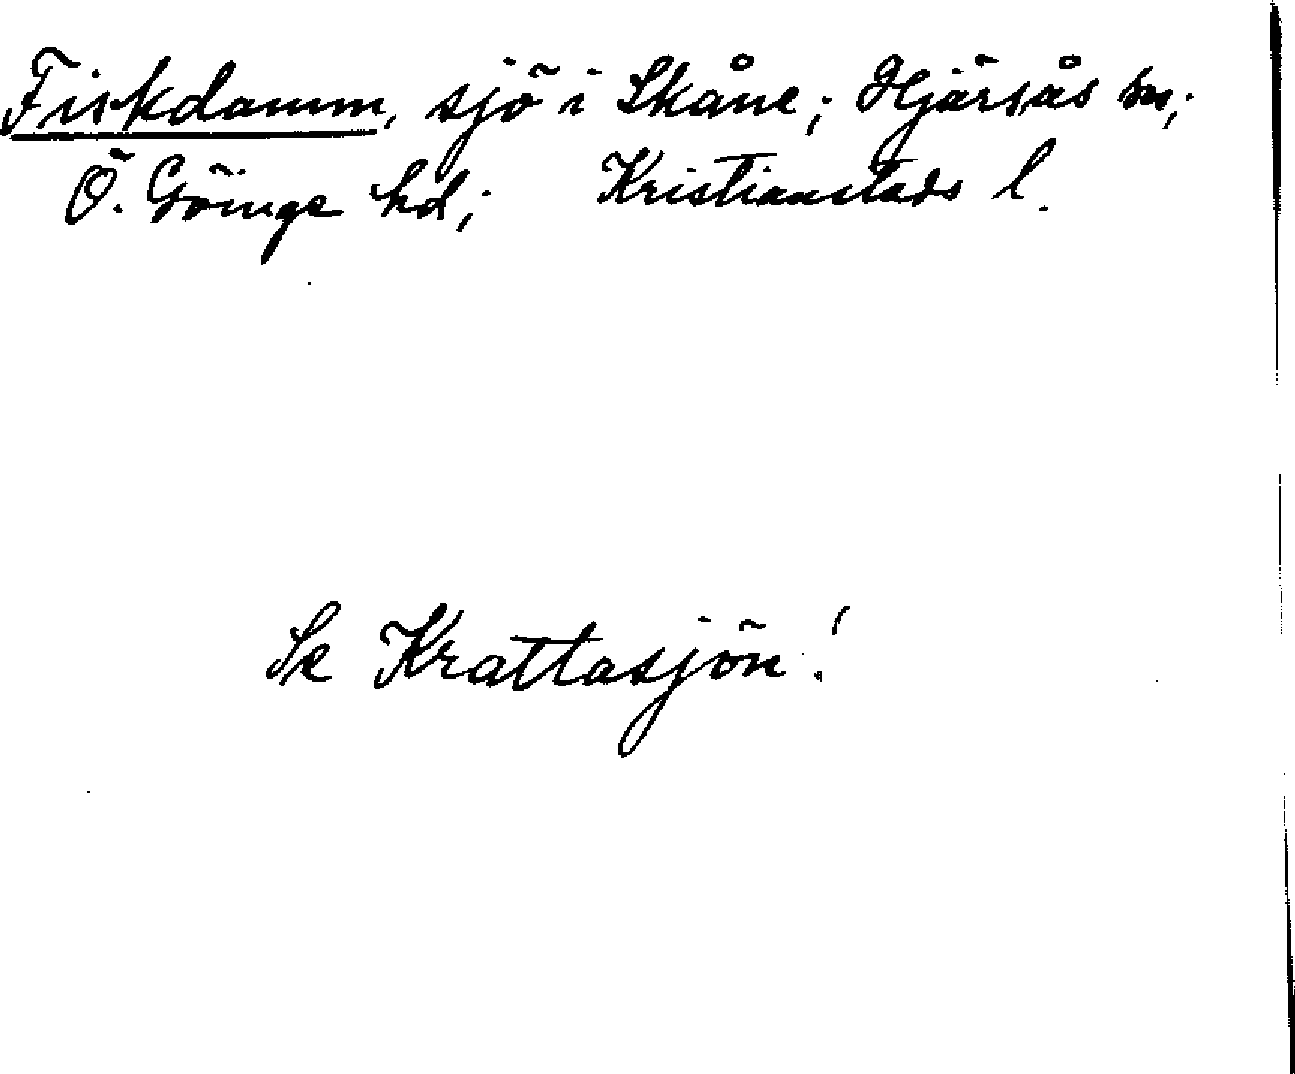 Fiskdamm, sjö i Skåne; Hjärsås sn;
Ö. Göinge hd; Kristianstads l.
Se Krattasjön!